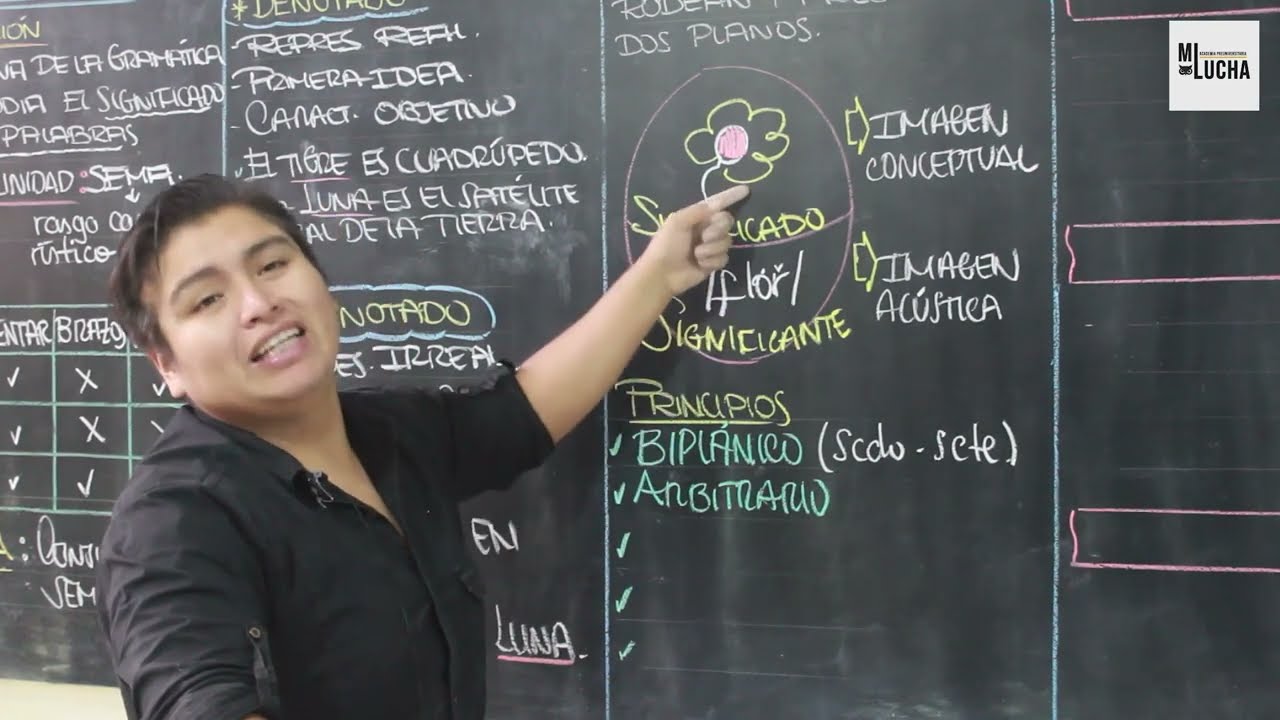 DE LA GRAMÁTICA
EL SIGNIFICADO
PALABRAS
UNIDAD: SEMA.
rasgo
* DENOTADO
- REPRES REAL.
- PRIMERA IDEA.
- CARACT. OBJETIVO
- EL TIGRE ES CUADRÚPEDO.
LUNA ES EL SATÉLITE
DE LA TIERRA.
NOTADO
IRREAL
EN
LUNA.
ENTAR BRAZO
✓ X ✓
✓ X
✓ ✓
DOS PLANOS.
S ICADO
/flór̆/
SIGNIFICANTE
IMAGEN
CONCEPTUAL
IMAGEN
ACÚSTICA
PRINCIPIOS
✓ BIPLÁNICO (scdo - scte)
✓ ARBITRARIO
✓
✓
✓
MI
ACADEMIA PREUNIVERSITARIA
LUCHA